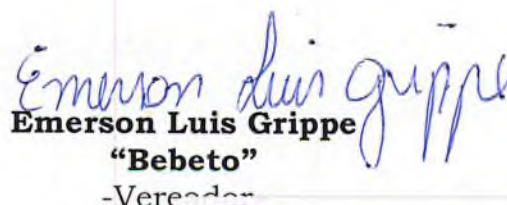 Emerson Luis Grippe
Emerson Luis Grippe
“Bebeto”
-Vereador-